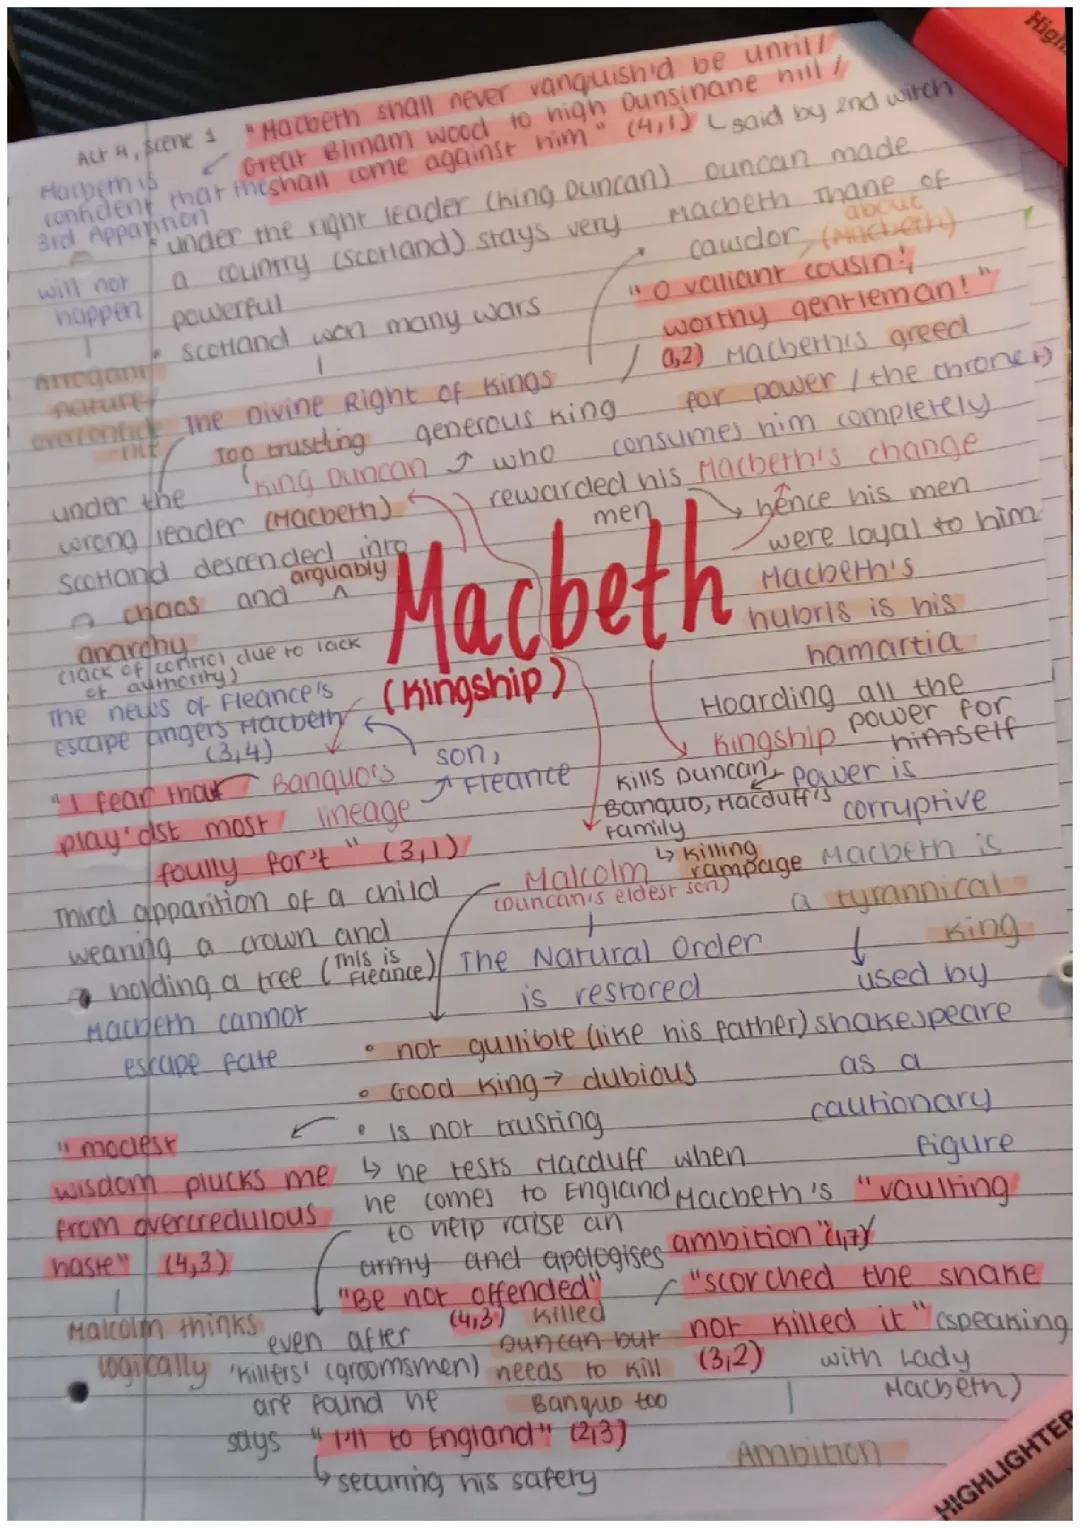 Act 4, Scene 1
"Macbeth shall never vanquish'd be until /
Great Birnam wood to high Dunsinane hill /
shall come against him" (4,1)
said by 2nd witch
Macbeth is
confident that the
3rd Apparition
will not
happen
Arrogant
nature /
under the right leader (king Duncan)
a country (scotland) stays very
powerful
scotland won many wars
The Divine Right of Kings
Duncan made
Macbeth Thane of
cawdor
about
(Macbeth)
"O valiant cousin!,
worthy gentleman!"
(1,2)
Macbeth's greed
for power / the throne
consumes him completely
Macbeth's change
Too trusting
King Duncan
generous king
who
rewarded his
men
hence his men
were loyal to him
under the
wrong leader (Macbeth)
scotland descended into
chaos and arguably
anarchy
(lack of control due to lack
of authority)
Macbeth
(kingship)
Macbeth's
hubris is his
hamartia
Hoarding all the
power for
himself
Kingship
power is
corruptive
The news of Fleance's
escape angers Macbeth
(3,4)
son,
Fleance
Banquo's
lineage
"I fear thou
play'dst most
foully for't" (3,1)
Kills Duncan,
Banquo, Macduff's
family
killing
rampage
Malcolm
(Duncan's eldest son)
The Natural Order
is restored
Macbeth is
a tyrannical
king
used by
shakespeare
as a
cautionary
figure
Third apparition of a child
wearing a crown and
holding a tree (This is
Fleance)
Macbeth cannot
escape fate
not gullible (like his father)
Good King → dubious
Is not trusting
he tests Macduff when
he comes to England
to help raise an
army and apologises
"Be not offended"
(4,3)
"modest
wisdom plucks me
from overcredulous
haste" (4,3)
Malcolm thinks
logically
even after
'killers' (groomsmen)
are found he
says "I'll to England" (2,3)
securing his safety
Macbeth's "vaulting
ambition" (1,7)
"scorched the snake
not killed it" (speaking
(3,2) with Lady
Macbeth)
killed
Duncan but
needs to kill
Banquo too
Ambition
High
HIGHLIGHTER